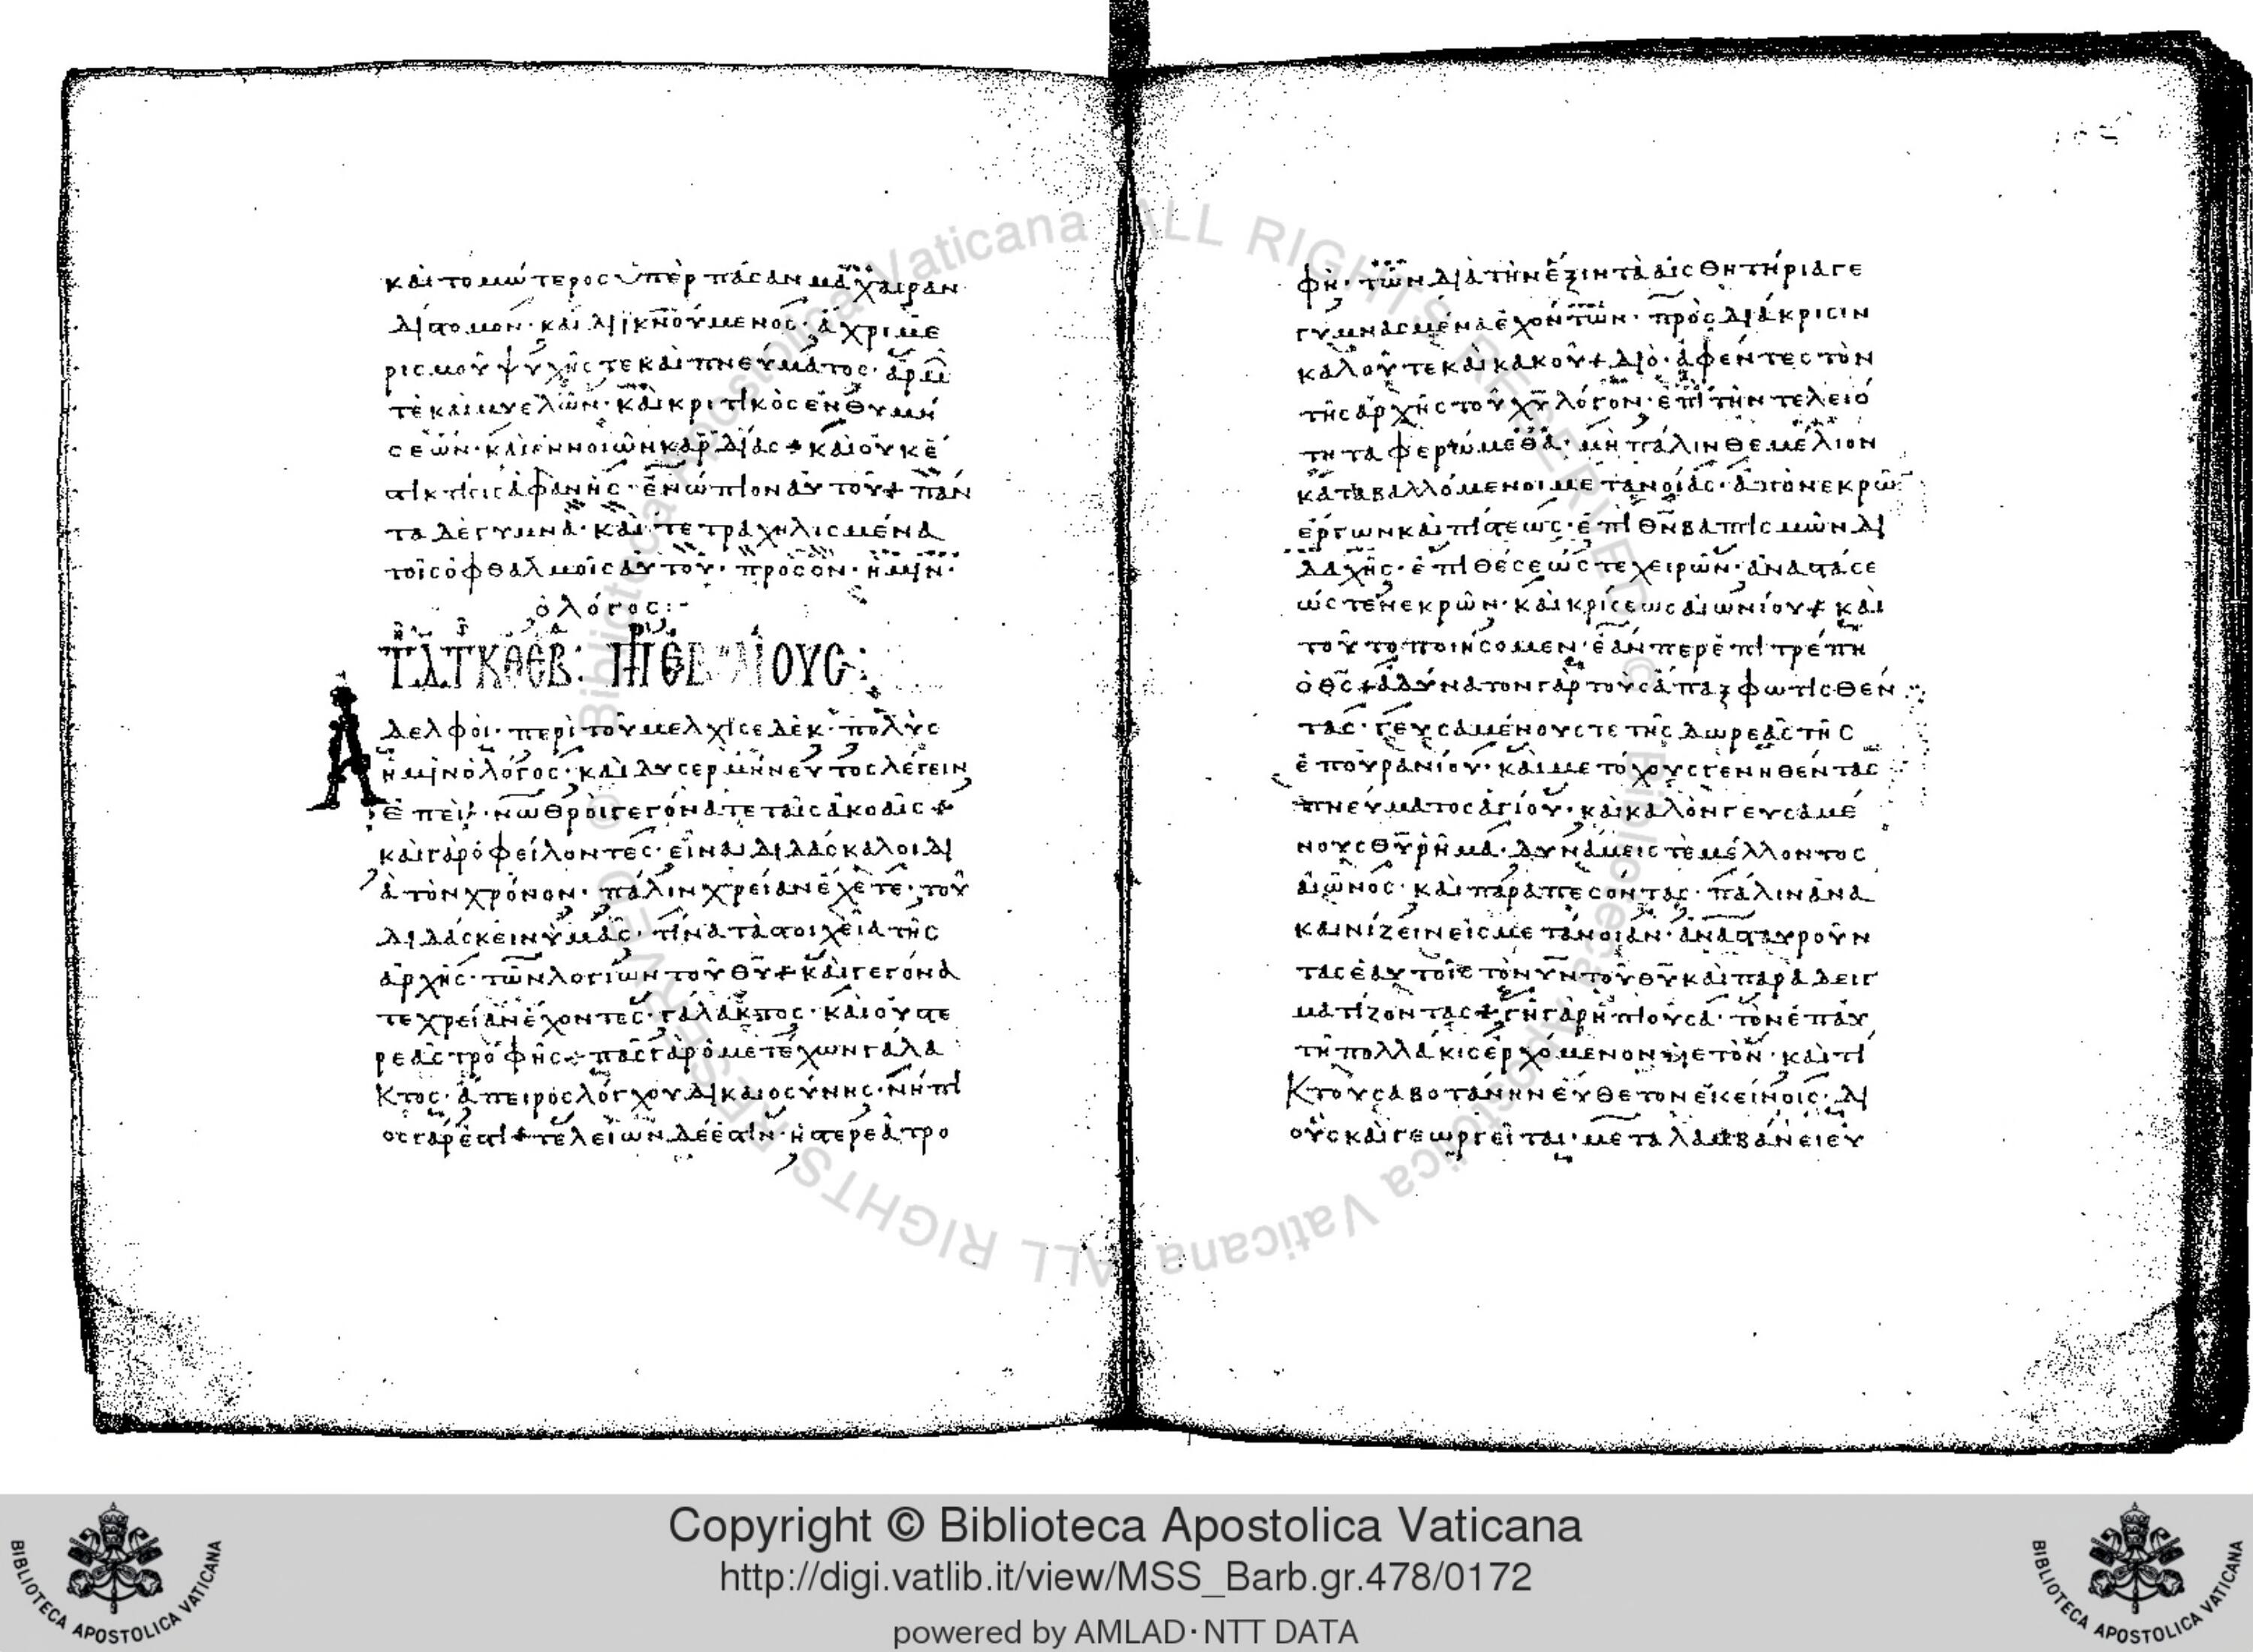 καὶ τομώτερος ὑπὲρ πᾶσαν μάχαιραν
δίστομον· καὶ διϊκνούμενος· ἄχρι με
ρισμοῦ ψυχῆς τε καὶ πνεύματος· ἁρμῶ
τε καὶ μυελῶν· καὶ κριτικὸς ἐνθυμή
σεων· καὶ ἐννοιῶν καρδίας + καὶ οὐκ ἔ
στι κτίσις ἀφανὴς· ἐνώπιον αὐτοῦ + πάν
τα δὲ γυμνὰ· καὶ τετραχηλισμένα
τοῖς ὀφθαλμοῖς αὐτοῦ· πρὸς ὃν· ἡμῖν·
ὁ λόγος:-
Ἀδελφοὶ· περὶ τοῦ μελχισεδὲκ· πολὺς
ἡμῖν ὁ λόγος· καὶ δυσερμήνευτος λέγειν
ἐπεὶ· νωθροὶ γεγόνατε ταῖς ἀκοαῖς +
καὶ γὰρ ὀφείλοντες· εἶναι διδάσκαλοι δι
ὰ τὸν χρόνον· πάλιν χρείαν ἔχετε· τοῦ
διδάσκειν ὑμᾶς· τίνα τὰ στοιχεῖα τῆς
ἀρχῆς· τῶν λογίων τοῦ θυ + καὶ γεγόνα
τε χρείαν ἔχοντες· γάλακτος· καὶ οὐ στε
ρεᾶς τροφῆς + πᾶς γὰρ ὁ μετέχων γάλα
κτος· ἄπειρος λόγχου δικαιοσύνης· νήπι
ος γάρ ἐστι + τελείων δέ ἐστιν· ἡ στερεὰ τρο
φὴ· τῶν διὰ τὴν ἕξιν τὰ αἰσθητήρια γε
γυμνασμένα ἐχόντων· πρὸς διάκρισιν
καλοῦ τε καὶ κακοῦ + διὸ· ἀφέντες τὸν
τῆς ἀρχῆς τοῦ χυ λόγον· ἐπὶ τὴν τελειό
τητα φερώμεθα· μὴ πάλιν θεμέλιον
καταβαλλόμενοι μετανοίας· ἀπὸ νεκρῶ
ἔργων καὶ πίστεως· ἐπὶ θν βαπτισμῶν δι
δαχῆς· ἐπιθέσεώς τε χειρῶν· ἀναστάσε
ώς τε νεκρῶν· καὶ κρίσεως αἰωνίου + καὶ
τοῦτο ποιήσομεν· ἐάνπερ ἐπιτρέπη
ὁ θς + ἀδύνατον γὰρ τοὺς ἅπαξ φωτισθέν
τας· γευσαμένους τε τῆς δωρεᾶς τῆς
ἐπουρανίου· καὶ μετόχους γενηθέντας
πνεύματος ἁγίου· καὶ καλὸν γευσαμέ
νους θυ ῥῆμα· δυνάμεις τε μέλλοντος
αἰῶνος· καὶ παραπεσόντας· πάλιν ἀνα
καινίζειν εἰς μετάνοιαν· ἀνασταυροῦν
τας ἑαυτοῖς τὸν υν τοῦ θυ καὶ παραδειγ
ματίζοντας + γῆ γὰρ ἡ πιοῦσα· τὸν ἐπ' αὐ
τῆ πολλάκις ἐρχόμενον ὑετὸν· καὶ τί
κτουσα βοτάνην εὔθετον ἐκείνοις· δι
οὓς καὶ γεωργεῖται· μεταλαμβάνει εὐ
Copyright © Biblioteca Apostolica Vaticana
http://digi.vatlib.it/view/MSS_Barb.gr.478/0172
powered by AMLAD·NTT DATA
BIBLIOTECA APOSTOLICA VATICANA
BIBLIOTECA APOSTOLICA VATICANA
© Biblioteca Apostolica Vaticana ALL RIGHTS RESERVED
© Biblioteca Apostolica Vaticana ALL RIGHTS RESERVED